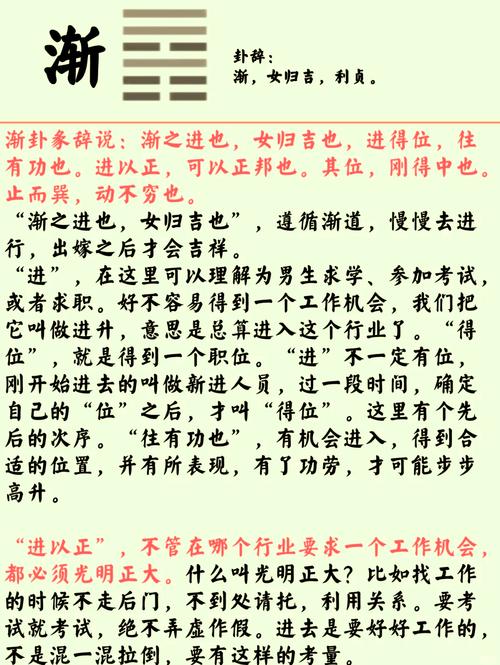 渐
卦辞：
渐，女归吉，利贞。
渐卦彖辞说：渐之进也，女归吉也，进得位，往
有功也。进以正，可以正邦也。其位，刚得中也。
止而巽，动不穷也。
“渐之进也，女归吉也”，遵循渐道，慢慢去进
行，出嫁之后才会吉祥。
“进”，在这里可以理解为男生求学、参加考试，
或者求职。好不容易得到一个工作机会，我们把
它叫做进升，意思是总算进入这个行业了。“得
位”，就是得到一个职位。“进”不一定有位，
刚开始进去的叫做新进人员，过一段时间，确定
自己的“位”之后，才叫“得位”。这里有个先
后的次序。“往有功也”，有机会进入，得到合
适的位置，并有所表现，有了功劳，才可能步步
高升。
“进以正”，不管在哪个行业要求一个工作机会，
都必须光明正大。什么叫光明正大？比如找工作
的时候不走后门，不到处请托，利用关系。要考
试就考试，绝不弄虚作假。进去是要好好工作的，
不是混一混拉倒，要有这样的考量。